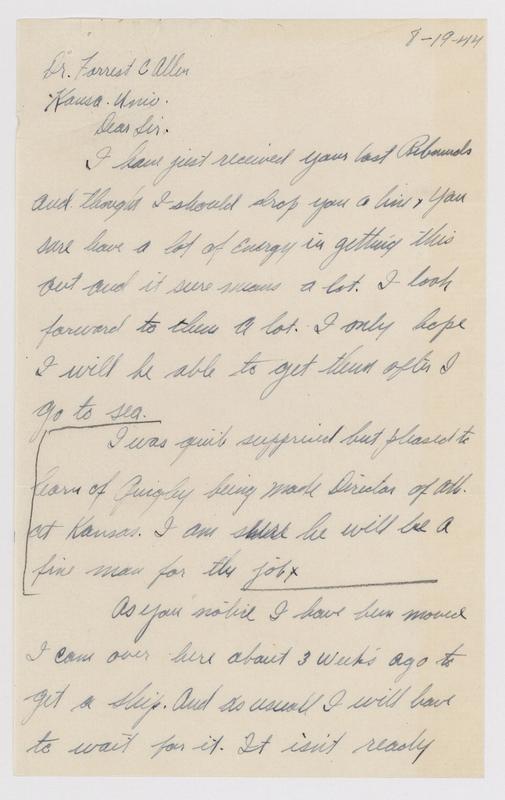 8-19-44
Dr. Forrest C Allen
Kansa. Univ.
Dear Sir.
I have just received your last Rebounds
and thought I should drop you a line, you
sure have a lot of energy in getting this
out and it sure means a lot. I look
forward to them a lot. I only hope
I will be able to get them after I
go to sea.
I was quite supprised but pleased to
learn of Quigley being made Director of ath.
at Kansas. I am shure he will be a
fine man for the job.
As you notice I have been moved
I came over here about 3 weeks ago to
get a ship. And as usuall I will have
to wait for it. It isn't ready